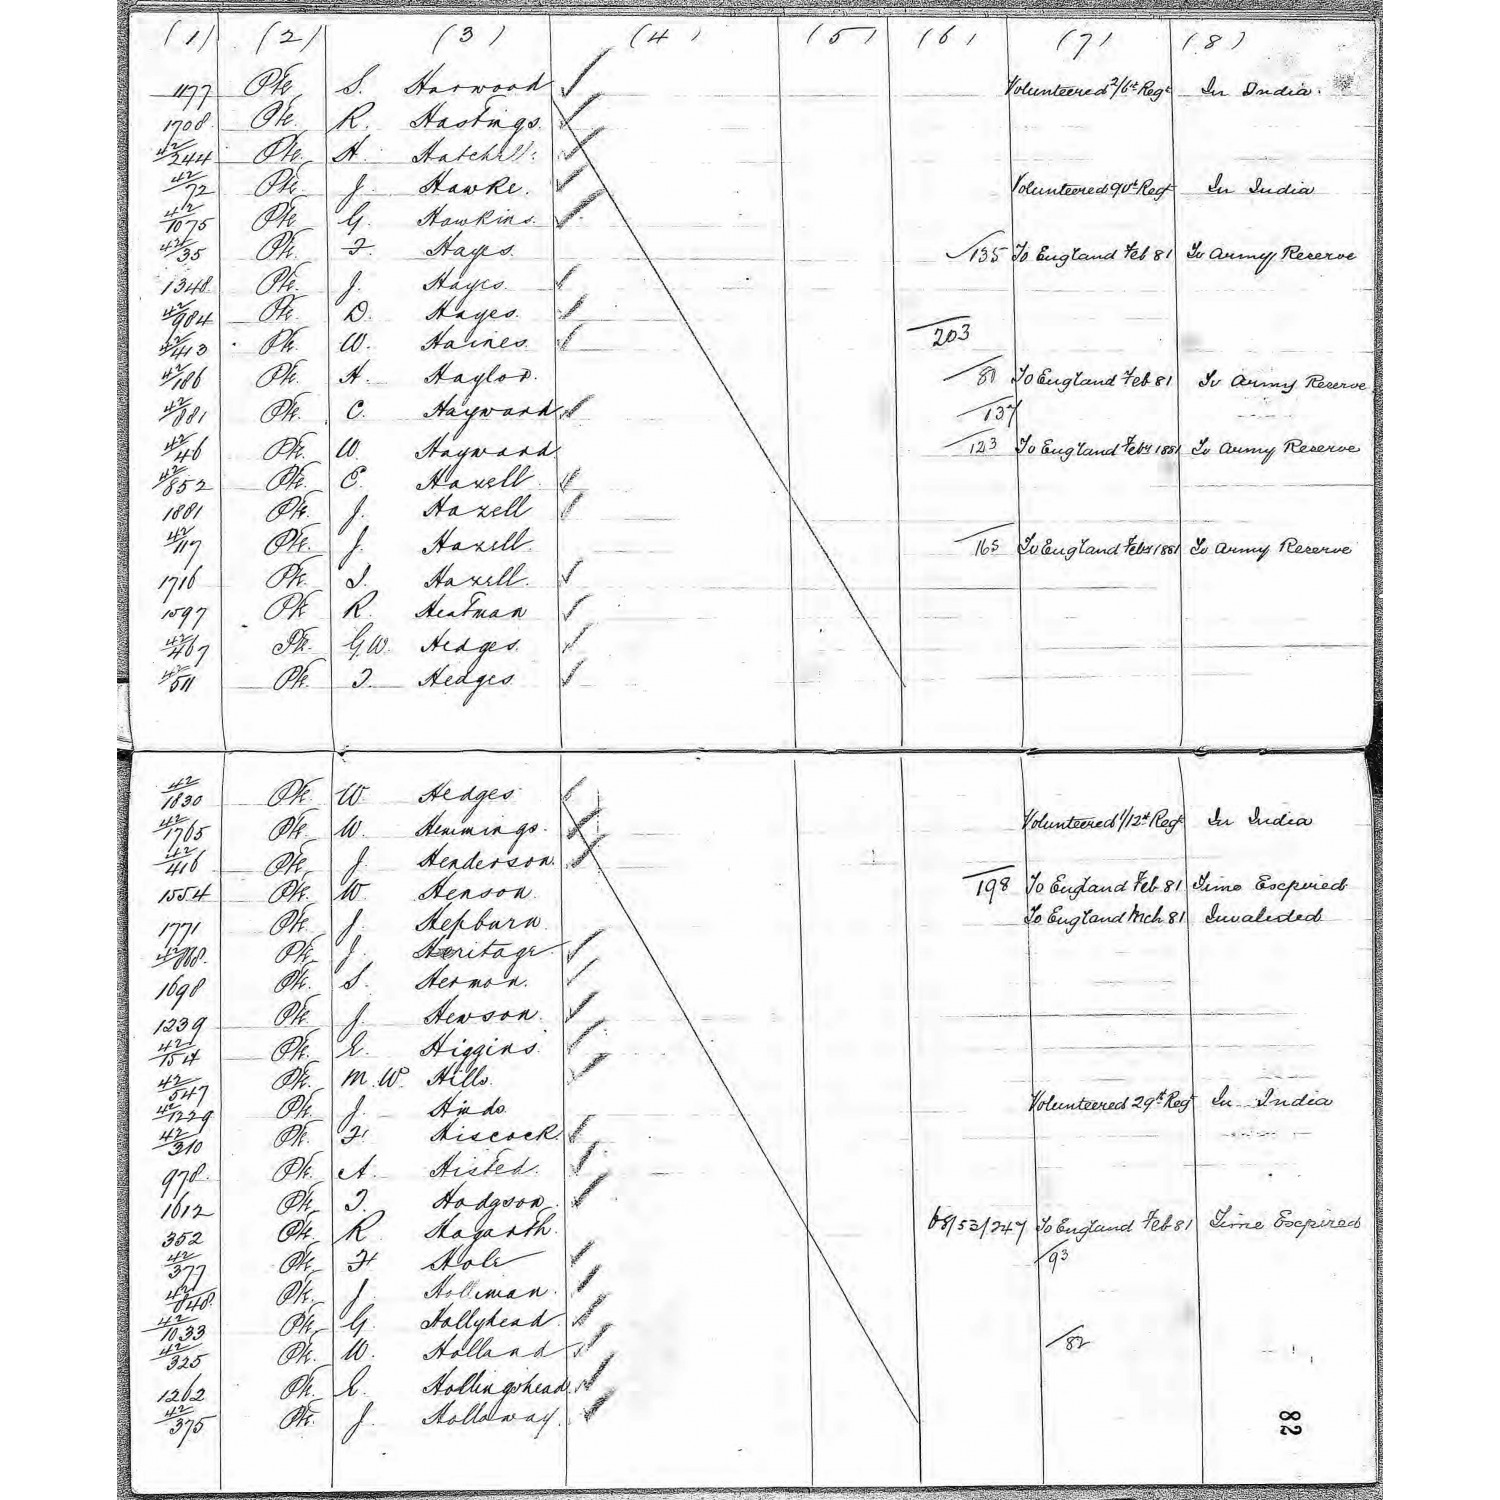 (1) (2) (3) (4) (5) (6) (7) (8)
1177 Pte S. Harwood Volunteered 2/6th Regt In India.
1708 Pte R. Hastings.
42/244 Pte H. Hatchell.
42/72 Pte J. Hawke. Volunteered 90th Regt In India
42/1075 Pte G. Hawkins.
42/35 Pte F. Hayes. /135 To England Feb 81 To Army Reserve
1348 Pte J. Hayes.
42/984 Pte D. Hayes.
42/413 Pte W. Haines. /203
42/186 Pte H. Haylor. To England Feb 81 To Army Reserve
42/881 Pte C. Hayward /137
42/46 Pte W. Hayward /123 To England Feby 1881 To Army Reserve
42/852 Pte E. Hazell
1881 Pte J. Hazell
42/117 Pte J. Hazell. /165 To England Feby 1881 To Army Reserve
1716 Pte T. Hazell.
1597 Pte R. Heatman
42/467 Pte G.W. Hedges.
42/511 Pte T. Hedges.
42/1830 Pte W. Hedges
42/1765 Pte W. Hemmings. Volunteered 1/12th Regt In India
42/416 Pte J. Henderson.
1554 Pte W. Henson. /198 To England Feb 81 Time Expired
1771 Pte J. Hepburn. To England Mch 81 Invalided
Pte J. Heritage.
1698 Pte S. Hermon.
1239 Pte J. Hewson.
Pte E. Higgins.
42/547 Pte M.W. Hills.
42/1229 Pte J. Hinds. Volunteered 29th Regt In India
42/310 Pte F. Hiscock.
978. Pte A. Histed.
1612 Pte T. Hodgson.
352 Pte R. Hogarth. 68/53/247 To England Feb 81 Time Expired
42/377 Pte F. Hole /93
42/848. Pte J. Holliman.
42/1033 Pte G. Hollyhead.
42/325 Pte W. Holland /82
1262 Pte E. Hollingshead.
42/375 Pte J. Holloway.
82